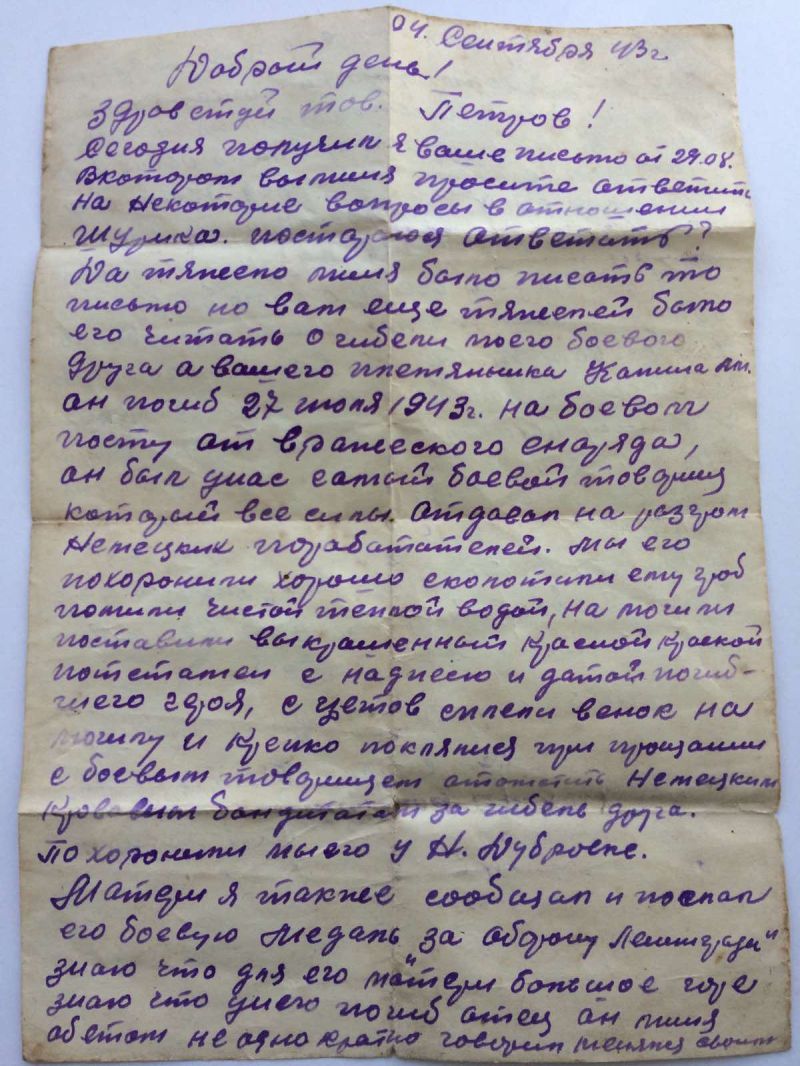 04. Сентября 43г
Добрый день!
Здравствуй тов. Петров!
Сегодня получил я ваше письмо от 29.08.
Вкотором вы просите ответить
на Некоторые вопросы в отношении
Шурика. постараюся ответать?
Да тяжело было писать то
письмо но вам еще тяжелей было
его читать О гибели моего боевого
друга а вашего племянника
он погиб 27 июля 1943г. на боевом
посту от вражеского снаряда,
он был унас самый боевой товарищ
который все силы. отдавал на разгром
Немецких поработателей. Мы его
похоронили хорошо сколотили ему гроб
помыли чистой теплой водой, на могили
поставили выкрашенный красной краской
с надписю и датой погиб-
шего героя, с цветов сплели венок на
могилу и крепко поклялися при прощании
с боевым товарищем отомстить Немецким
кровавым бандитам за гибель друга.
Похоронили мы его у Н. Дубровке.
Матери я также сообщал и послал
его боевую медаль "за оборону Ленинграда"
знаю что для его матери большое горе
знаю что унего погиб отец он
обетом не однократно говорил